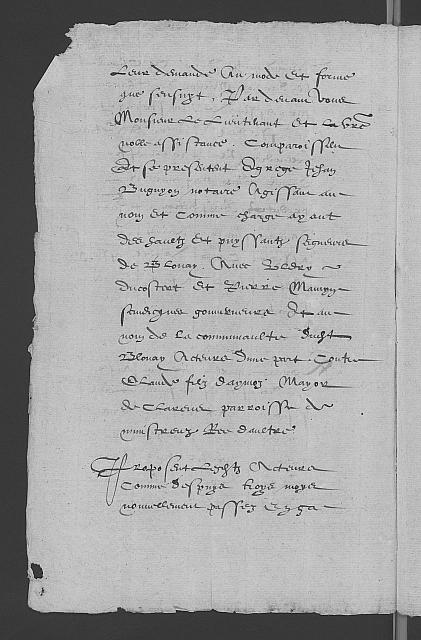 Leur demande Au mode et forme
que sensuyt, Par devant vous
Monsieur Le Lieutenant et la vre
noble assistance. Comparoissen
Et se presentent Egrege Jehan
Buguyon notaire Agissant au
nom et Comme charge ayant
des haultz et puyssantz seigneurs
de Blonay. Avec
ducostert et Pierre Mamyn
scindicques gouverneurs Et au
nom de la communaulte dudit
Blonay Acteurs dune part. Contre
Claude filz daymoz Mayor
de Clarens parroisse de
mustreux Ree daultre
Proposent Lesditz Acteurs
Comme despuys troys moys
nouvellement passez en ça